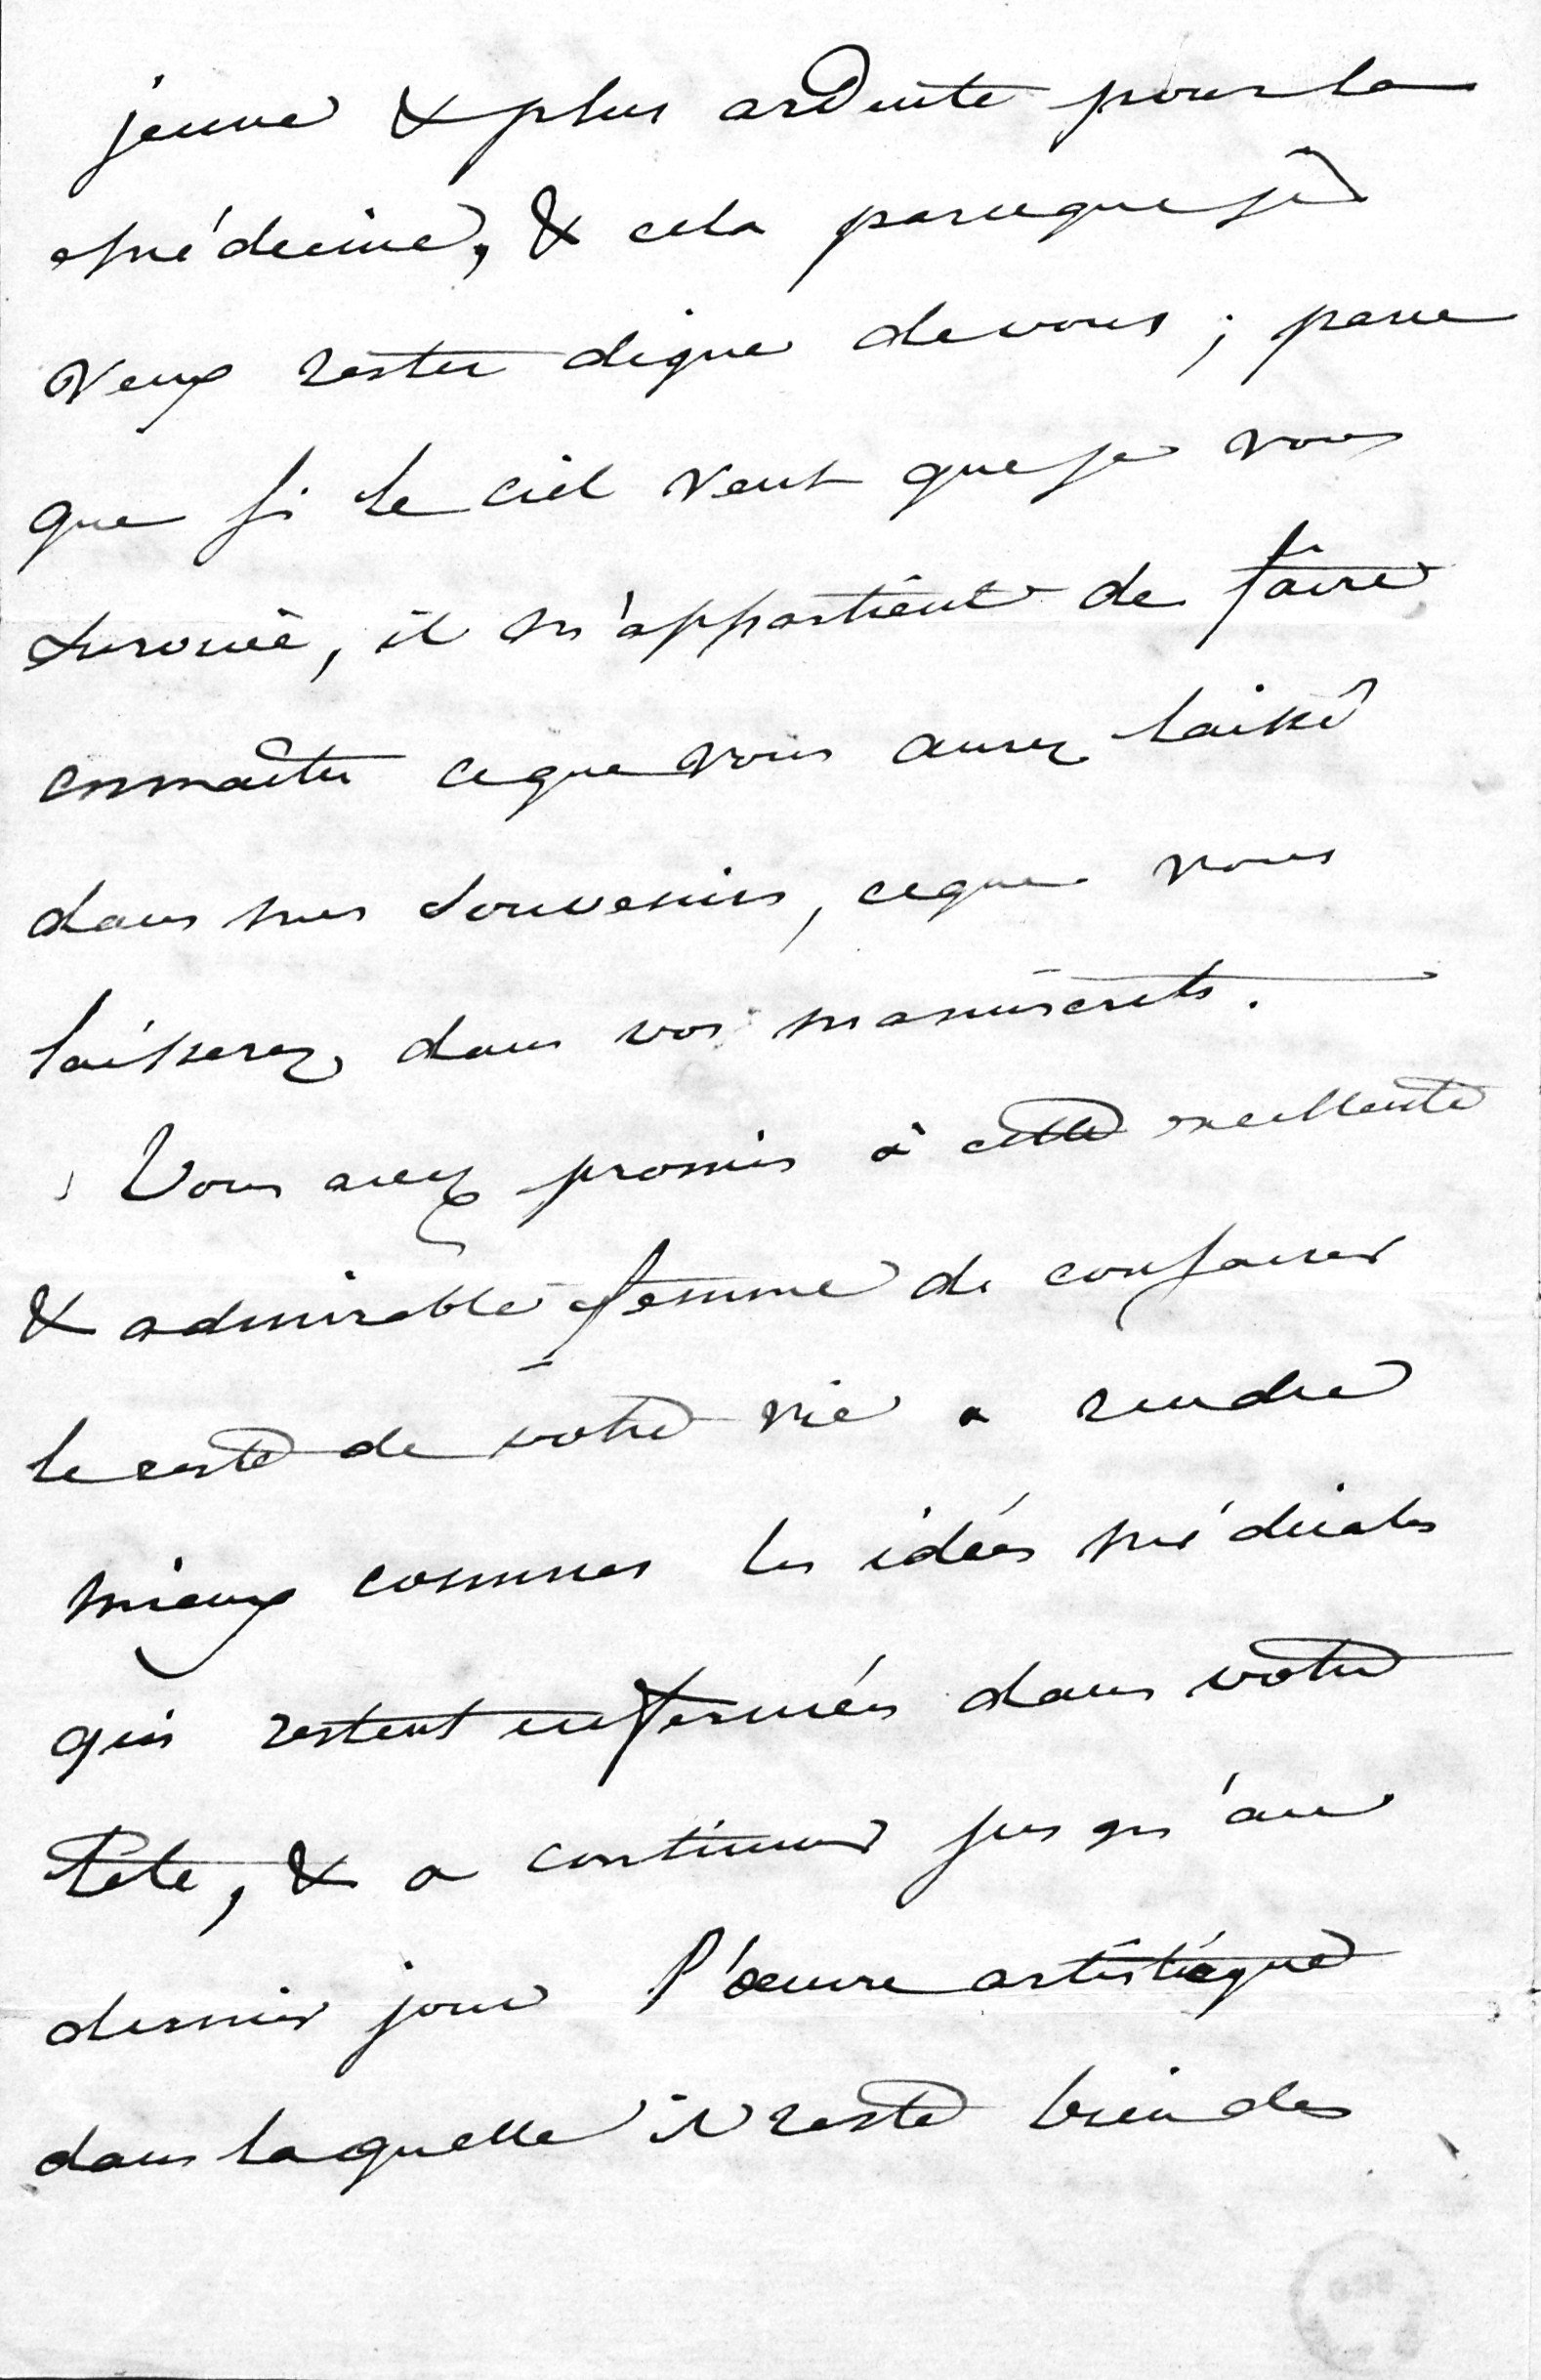 jeune & plus ardente pour la
médecine, & cela parceque je
veux rester digne de vous ; parce
que si le ciel veut que je vous
survive, il m'appartient de faire
connaître ce que vous aurez laissé
dans mes souvenirs, ce que vous
laisserez dans vos manuscrits.
Vous avez promis à cette excellente
& admirable femme de consacrer
le reste de votre vie a rendre
mieux connues les idées médicales
qui restent enfermées dans votre
tete, & a continuer jusqu'au
dernier jour l'œuvre artistique
dans laquelle il reste bien des